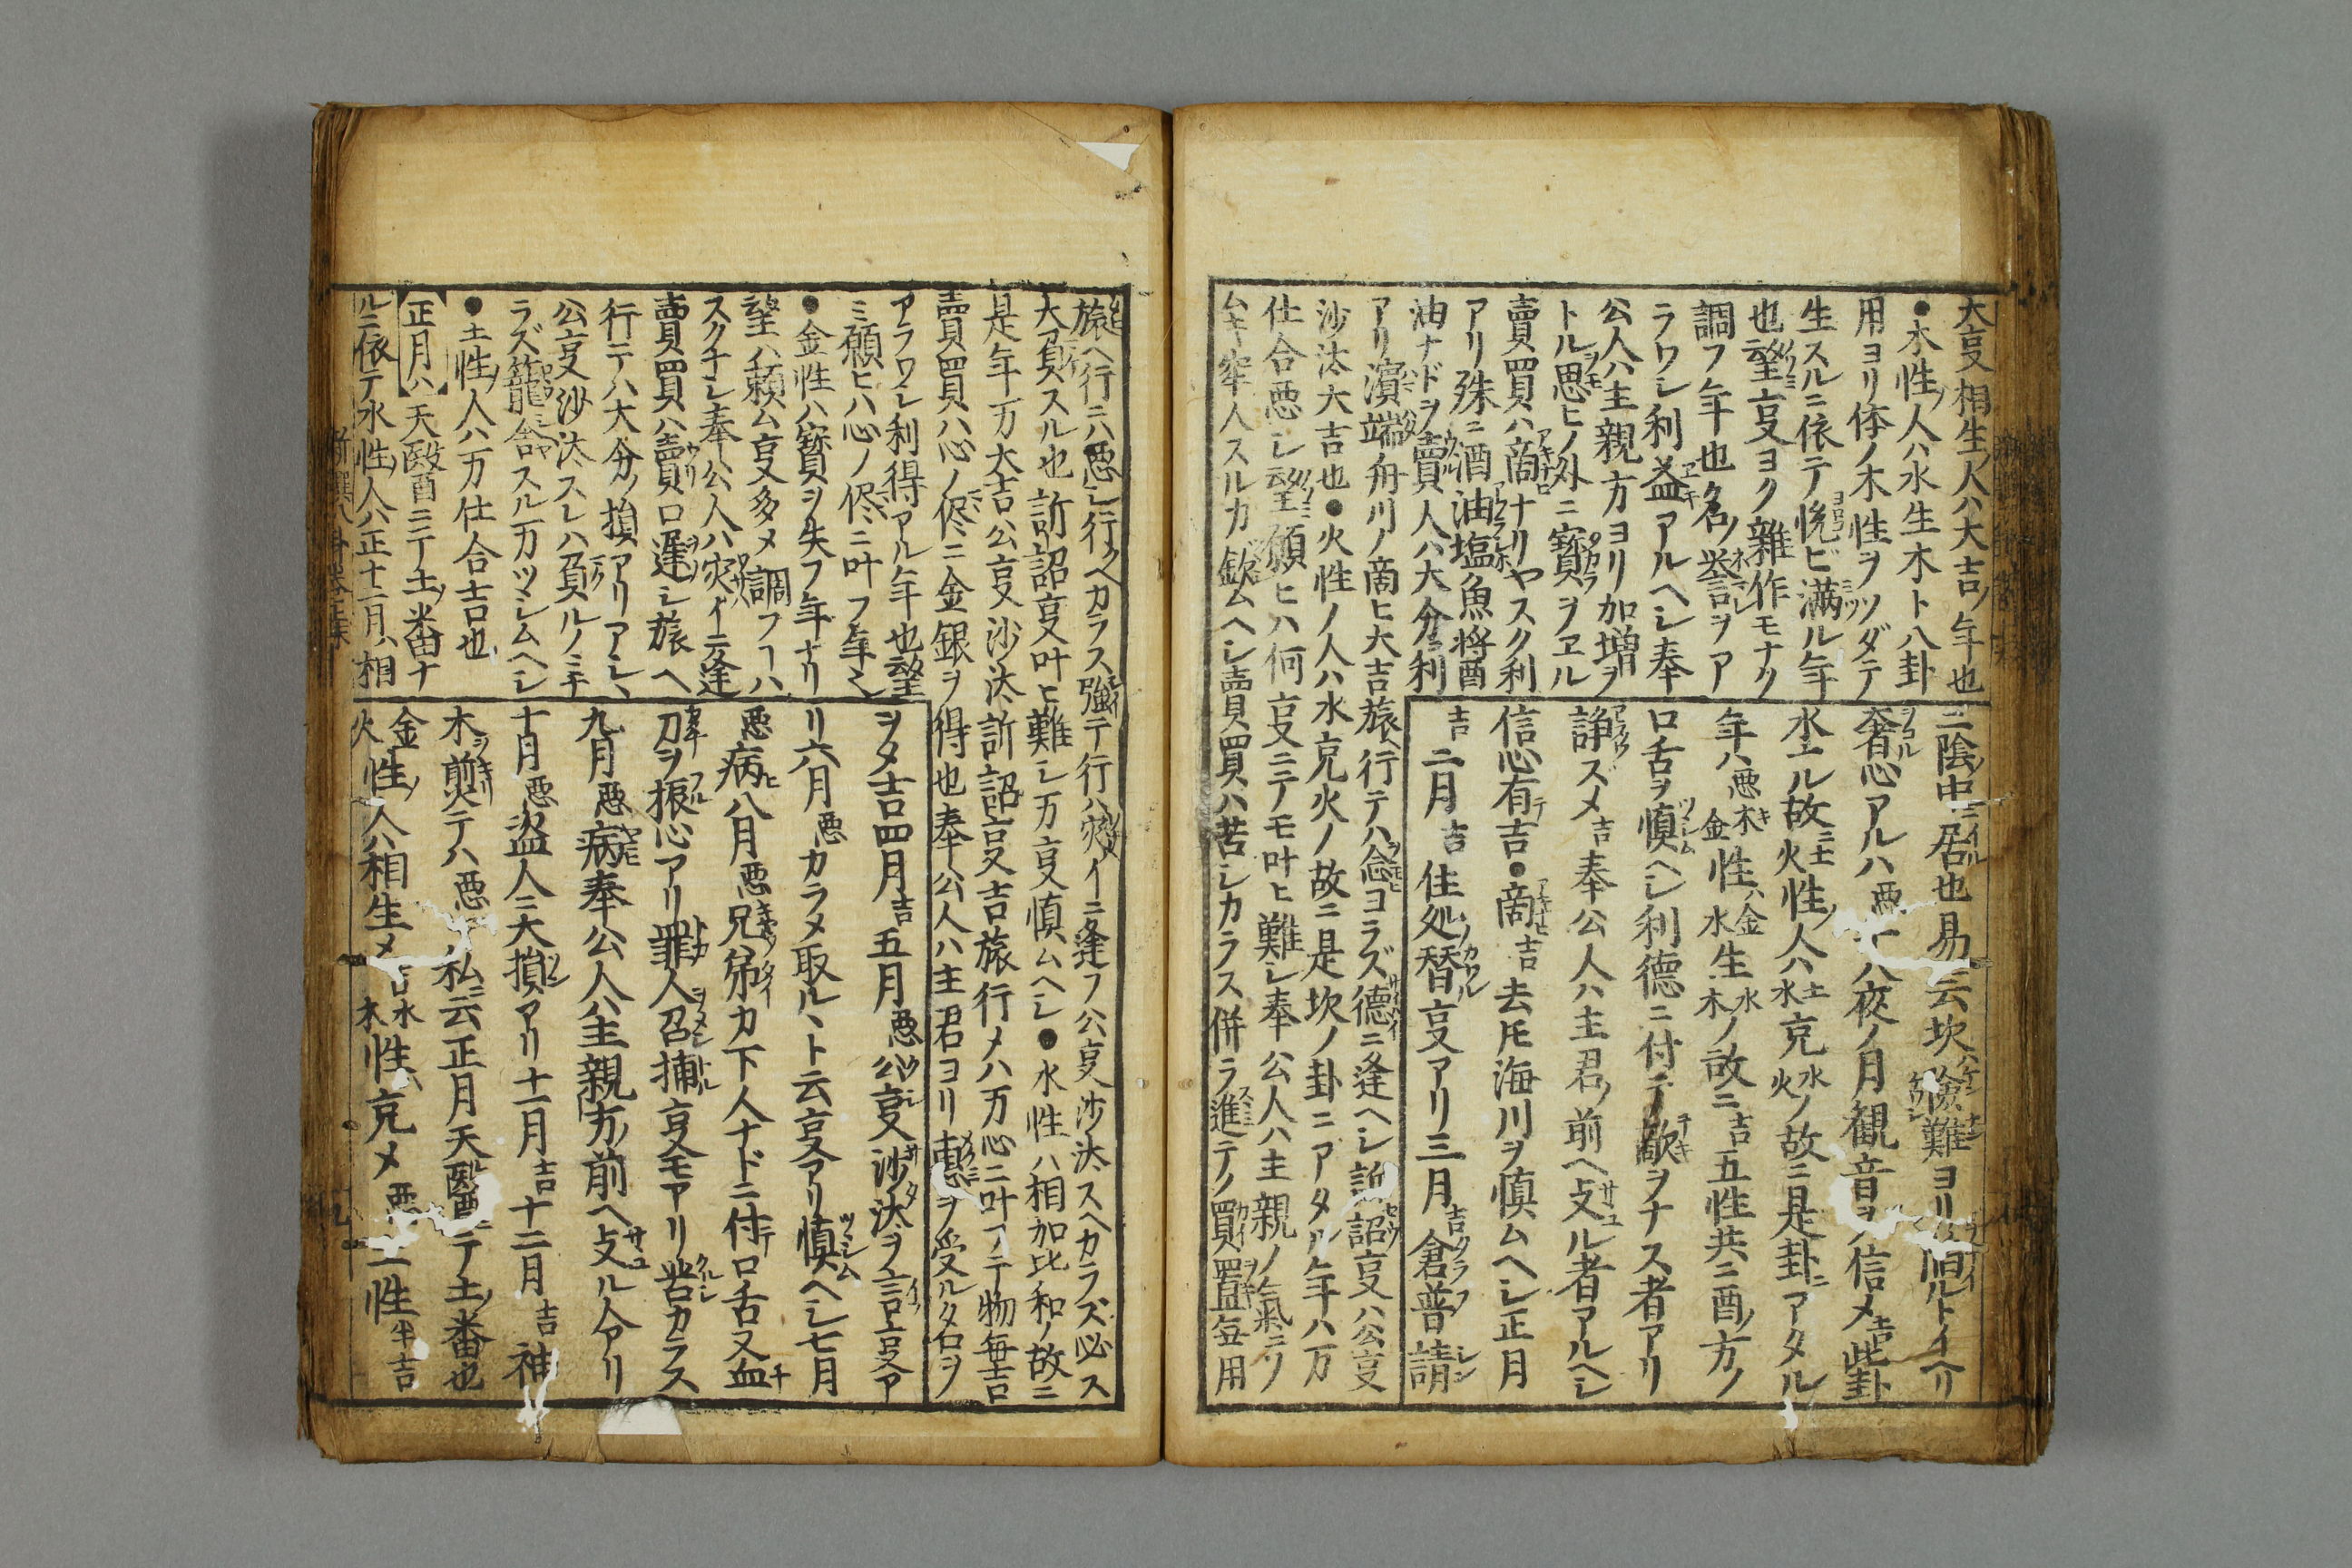 大㕝相生ノ人ハ大吉ノ年也
●木性ノ人ハ水生木ト八卦
用ヨリ体ノ木性ヲソダテ
生スルニ依テ悦ビ満ル年
也望㕝ヨク雑作モナク
調フ年也名ノ誉言ヲア
ラワシ利益アルヘシ奉
公人ハ主親方ヨリ加増ヲ
トル思ヒノ外ニ寳ヲヱル
賣買ハ商ナリヤスク利
アリ殊ニ酒油塩魚将酉
油ナドヲ賣人ハ大分ノ利
アリ濵端舟川ノ商ヒ大吉旅ヘ行テハ念コラズ德ニ逢ヘシ訴詔㕝ハ公㕝
沙汰大吉也●火性ノ人ハ水克火ノ故ニ是坎ノ卦ニアタル年ハ万
仕合悪シ望願ヒハ何㕝ニテモ叶ヒ難シ奉公人ハ主親ノ氣ニソ
ムキ牢人スルカ歛ムヘシ賣買ハ苦シカラス併ラ進テノ買置毎用
三陰中ニ居也易云坎ハ険難ヨリ
奢心アルハ悪十八夜ノ月観音ヲ信メ吉此卦
水ヱル故ニ火土性ノ人ハ土水克水火ノ故ニ是卦ニアタル
年ハ悪木金性ハ金水生水木ノ故ニ吉五性共ニ酉ノ方ノ
口舌ヲ慎ヘシ利德ニ付テ敵ヲナス者アリ
諍ズメ吉奉公人ハ主君ノ前ヘ支ル者アルヘシ
信心有テ吉●商吉去㐧海川ヲ慎ムヘシ正月
吉二月吉住処ノ替㕝アリ三月吉倉普請
旅ヘ行ニハ悪シ行クヘカラス強テ行ハ災イニ逢フ公㕝沙汰スヘカラズ必ス
大負スル也訴詔㕝叶ヒ難シ万㕝慎ムヘシ●水性ハ相加比和ノ故ニ
是年万大吉公㕝沙汰訴詔㕝吉旅行メハ万心ニ叶フテ物毎吉
賣買ハ心ノ侭ニ金銀ヲ得也奉公人ハ主君ヨリ恵ヲ受ル名ヲ
アラワシ利得アル年也望
ミ願ヒハ心ノ侭ニ叶フ年ミ
●金性ハ寳ヲ失フ年ナリ
望ハ頼ム㕝多メ調フヿハ
スクナシ奉公人ハ災イニ逢
賣買ハ賣口遅シ旅ヘ
行テハ大分ノ損アリアシヽ
公㕝沙汰スレハ負ルノミナ
ラズ籠舎スル万ツヽシムヘシ
●土性ノ人ハ万仕合吉也
【正月ハ】天醫酉ニテ土ノ番ナ
ルニ依テ水性ノ人ハ正十二月ハ相
ヲタ吉四月吉五月悪公㕝沙汰ヲ言㕝ア
リ六月悪カラメ取ルヽト云㕝アリ慎ヘシ七月
悪病八月悪兄弟カ下人ナドニ付口舌又血
刀ヲ振心アリ罪人召捕㕝モアリ苦カラス
九月悪病奉公人ハ主親方ノ前ヘ支ル人アリ
十月悪盗人ニ大損アリ十一月吉十二月吉神
木煎テハ悪私云正月天醫酉ニテ土ノ番也
金火性ノ人ハ相生メ吉水木性ハ克メ悪土性半吉